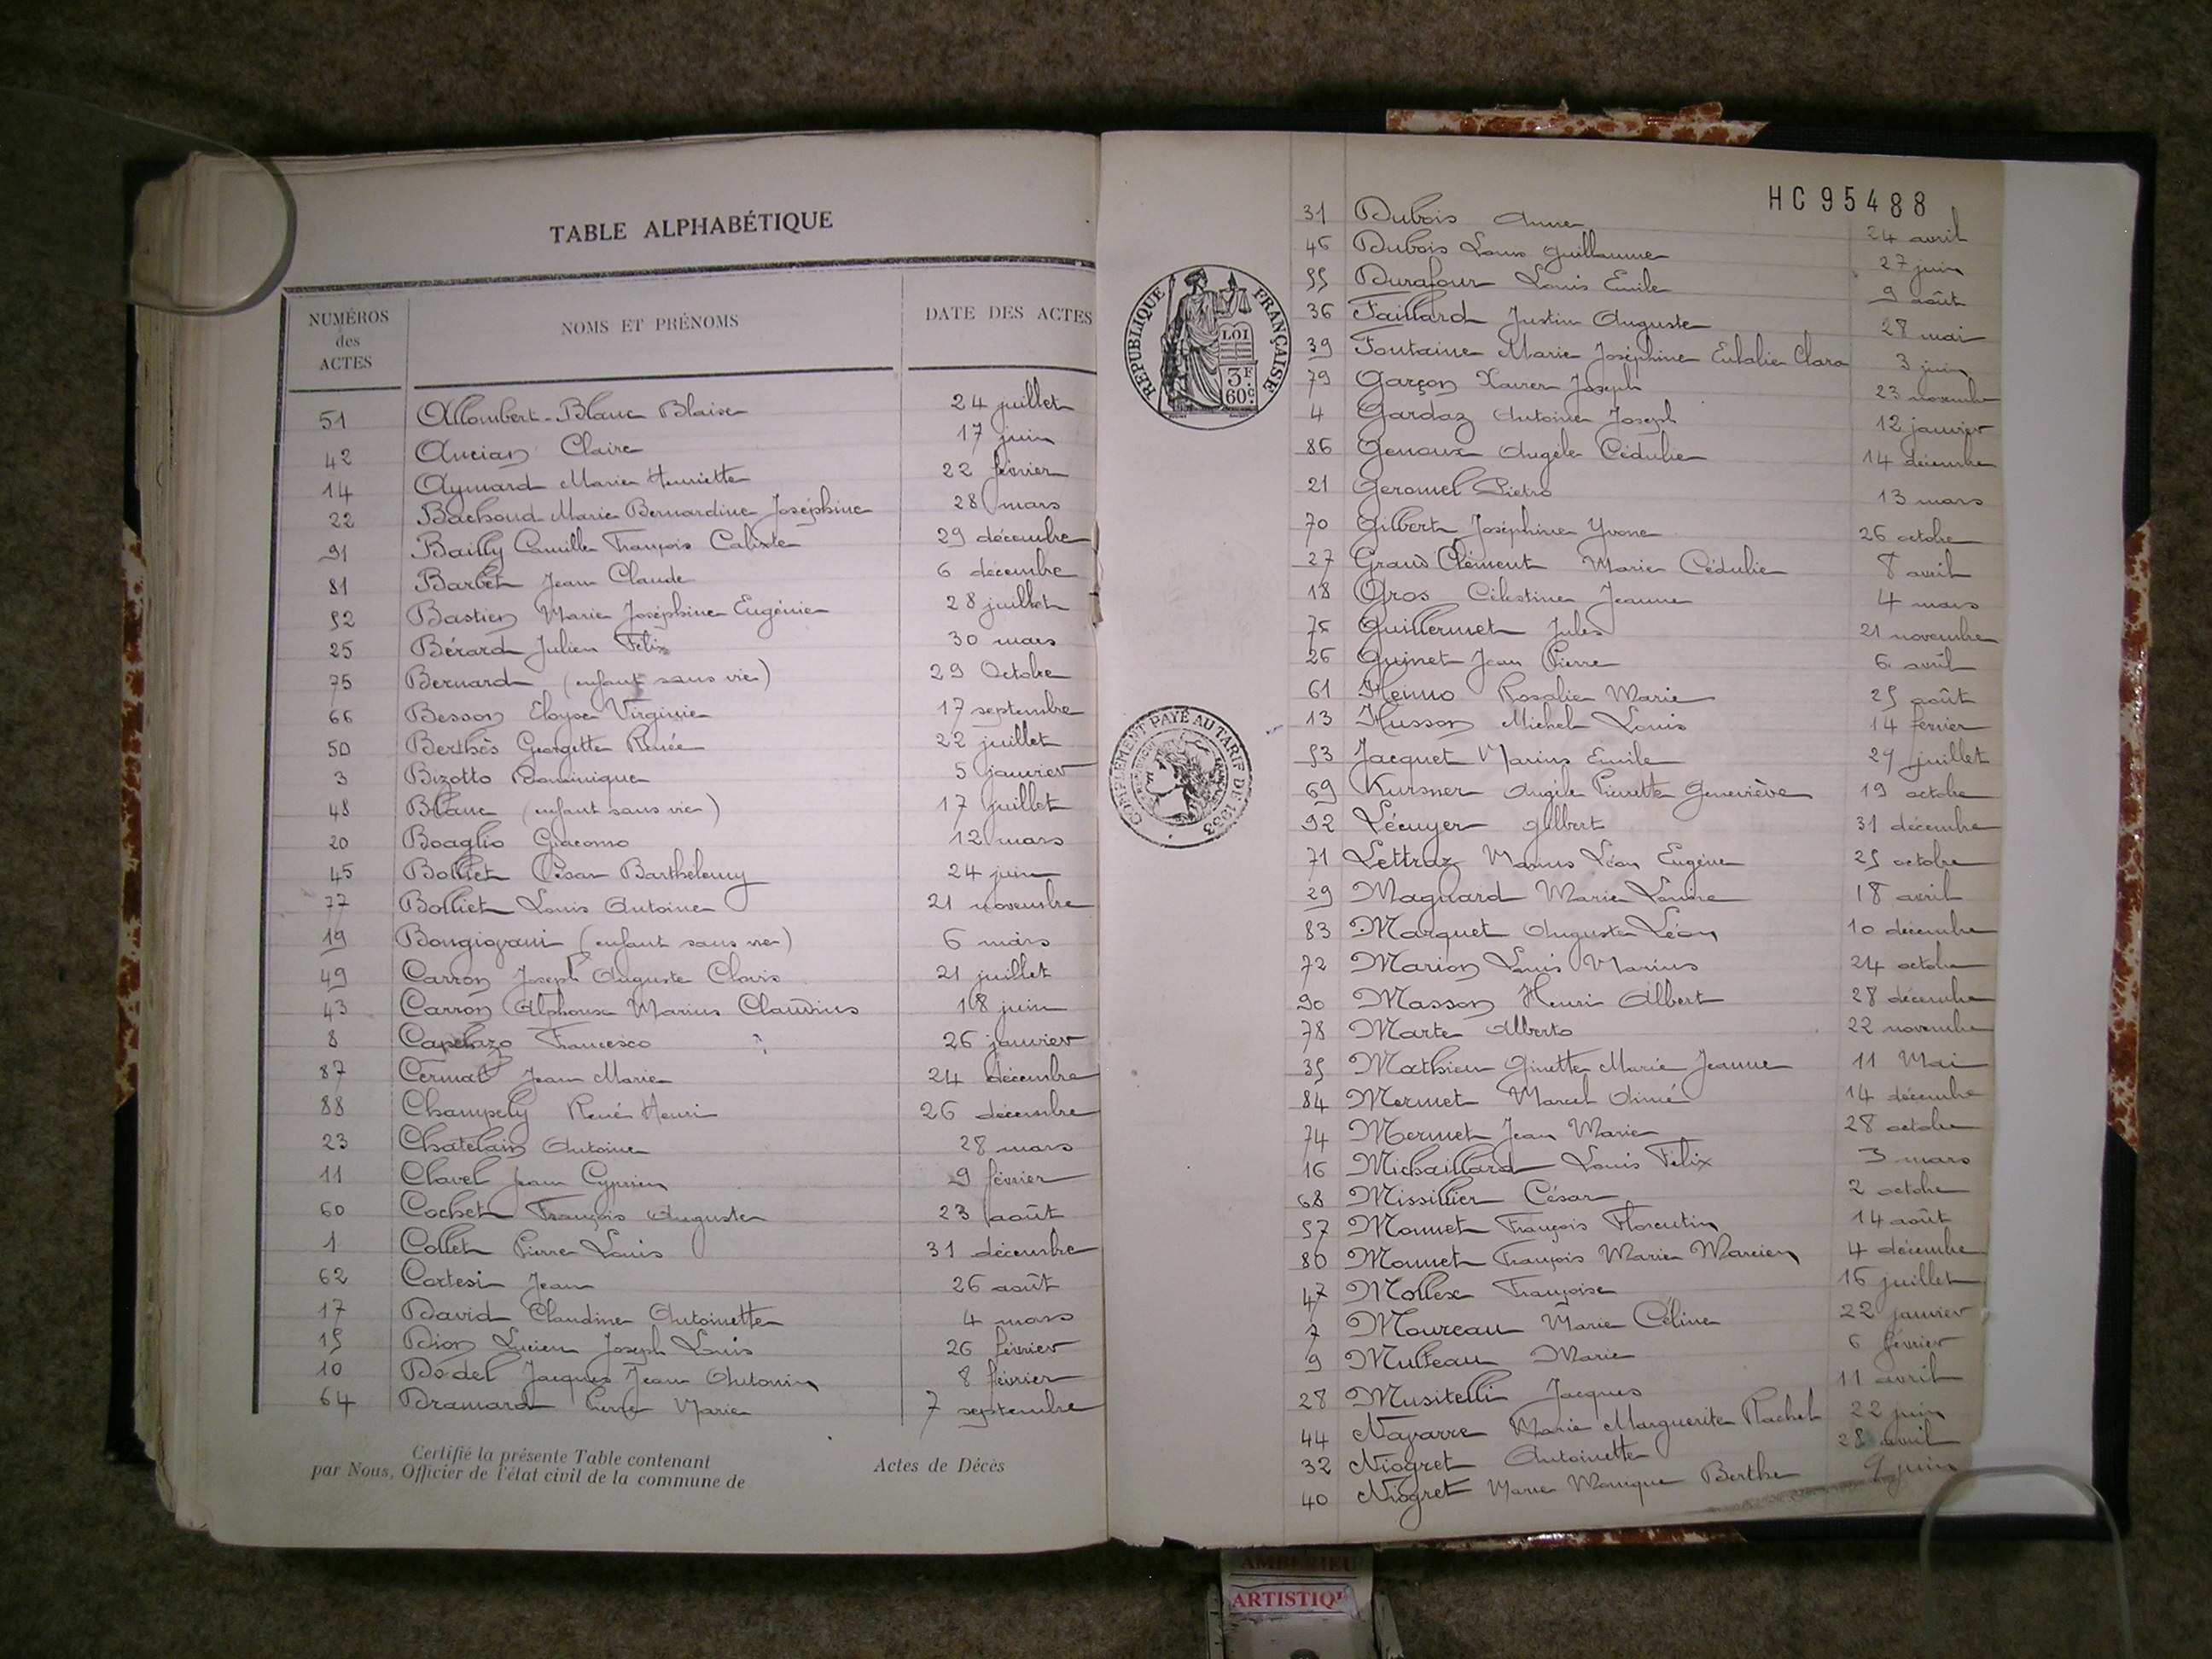 TABLE ALPHABÉTIQUE
NUMÉROS des ACTES
NOMS ET PRÉNOMS
DATE DES ACTES
51 Allombert-Blanc Blaise 24 juillet
42 Ancian Claire 17 juin
14 Aymard Marie Henriette 22 février
22 Bachoud Marie Bernardine Joséphine 28 mars
91 Bailly Camille François Calixte 29 décembre
81 Barbet Jean Claude 6 décembre
52 Bastien Marie Joséphine Eugénie 28 juillet
25 Bérard Julien Félix 30 mars
75 Bernard (enfant sans vie) 29 Octobre
66 Besson Eloyse Virginie 17 septembre
50 Berthès Georgette Renée 22 juillet
3 Bizotto Dominique 5 janvier
48 Blanc (enfant sans vie) 17 juillet
20 Boaglio Giacomo 12 mars
45 Bolliet César Barthélemy 24 juin
77 Bolliet Louis Antoine 21 novembre
19 Bongiovani (enfant sans vie) 6 mars
49 Carron Joseph Auguste Clovis 21 juillet
43 Carron Alphonse Marius Claudius 18 juin
8 Capelazo Francesco 26 janvier
87 Jean Marie 24 décembre
88 Champely René Henri 26 décembre
23 Chatelain Antoine 28 mars
11 Clavel Jean Cyprien 9 février
60 Cochet François Auguste 23 août
1 Collet Pierre Louis 31 décembre
62 Cortesi Jean 26 août
17 David Claudine Antoinette 4 mars
15 Dion Lucien Joseph Louis 26 février
10 Dodel Jacques Jean Antonin 8 février
64 Dramard Pierre Marie 7 septembre
Certifié la présente Table contenant Actes de Décès
par Nous, Officier de l'état civil de la commune de
HC95488
RÉPUBLIQUE FRANÇAISE
LOI
3F
60c.
COMPLÉMENT PAYÉ AU TARIF DE 1933
31 Dubois Anne 24 avril
46 Dubois Louis Guillaume 27 juin
55 Durafour Louis Emile 9 août
36 Faillard Justin Auguste 28 mai
39 Fontaine Marie Joséphine Eulalie Clara 3 juin
79 Garçon Xavier Joseph 23 novembre
4 Gardaz Antoine Joseph 12 janvier
86 Genoux Angèle Cédulie 14 décembre
21 Geromel Pietro 13 mars
70 Gilbert Joséphine Yvone 26 octobre
27 Grand Clément Marie Cédulie 8 avril
18 Gros Célestine Jeanne 4 mars
Guillermet Jules 21 novembre
26 Guinet Jean Pierre 6 avril
61 Henno Rosalie Marie 25 août
13 Husson Michel Louis 14 février
53 Jacquet Marius Emile 29 juillet
69 Kursner Angèle Pierrette Geneviève 19 octobre
92 Lécuyer Gilbert 31 décembre
71 Lettraz Marius Léon Eugène 25 octobre
29 Magnard Marie Louise 18 avril
83 Marquet Auguste Léon 10 décembre
72 Marion Louis Marius 24 octobre
90 Masson Henri Albert 28 décembre
78 Marte Alberto 22 novembre
35 Mathieu Ginette Marie Jeanne 11 Mai
84 Mermet Marcel Aimé 14 décembre
74 Mermet Jean Marie 28 octobre
16 Michaillard Louis Félix 3 mars
68 Missillier César 2 octobre
57 Monnet François Florentin 14 août
80 Monnet François Marie Marcien 4 décembre
47 Mollex Françoise 16 juillet
7 Moureau Marie Céline 22 janvier
9 Multeau Marie 6 février
28 Musitelli Jacques 11 avril
44 Navarre Marie Marguerite Rachel 22 juin
32 Niogret Antoinette 28 avril
40 Niogret Marie Monique Berthe 9 juin
AMBÉRIEU
ARTISTIQ